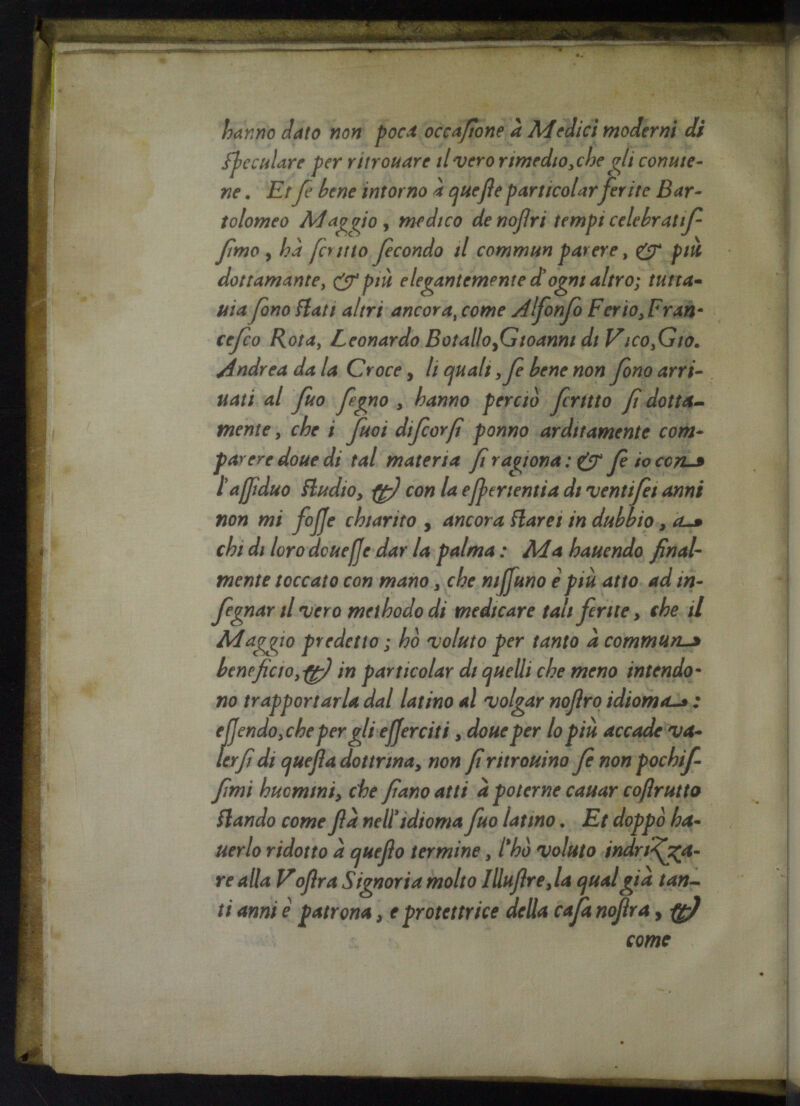 hanno dato non poca occaſione à Medici moderni di
ſpeculare per ritrouare il vero rimedio, che gli conuie-
ne. Et ſe bene intorno à queſte particolar ferite Bar-
tolomeo Maggio, medico de noſtri tempi celebratiſ-
ſimo, hà ſcritto ſecondo il commun parere, & più
dottamante, & più elegantemente d'ogni altro; tutta-
uia ſono ſtati altri ancora, come Alfonſo Ferio, Fran-
ceſco Rota, Leonardo Botallo, Gioanni di Vico, Gio.
Andrea da la Croce, li quali, ſe bene non ſono arri-
uati al ſuo ſegno, hanno perciò ſcritto ſi dotta-
mente, che i ſuoi diſcorſi ponno arditamente com-
parere doue di tal materia ſi ragiona: & ſe io con
l'aſſiduo ſtudio, & con la eſperientia di ventiſei anni
non mi foſſe chiarito, ancora ſtarei in dubbio, a
chi di loro doueſſe dar la palma: Ma hauendo final-
mente toccato con mano, che niſſuno è più atto ad in-
ſegnar il vero methodo di medicare tali ferite, che il
Maggio predetto; hò voluto per tanto à commun
beneficio, & in particolar di quelli che meno intendo-
no trapportarla dal latino al volgar noſtro idioma:
eſſendo, che per gli eſſerciti, doue per lo più accade va-
lerſi di queſta dottrina, non ſi ritrouino ſe non pochiſ-
ſimi huomini, che ſiano atti à poterne cauar coſtrutto
ſtando come ſtà nell'idioma ſuo latino. Et doppò ha-
uerlo ridotto à queſto termine, l'hò voluto indrizza-
re alla Voſtra Signoria molto Illuſtre, la qual già tan-
ti anni è patrona, e protettrice della caſa noſtra, &
come